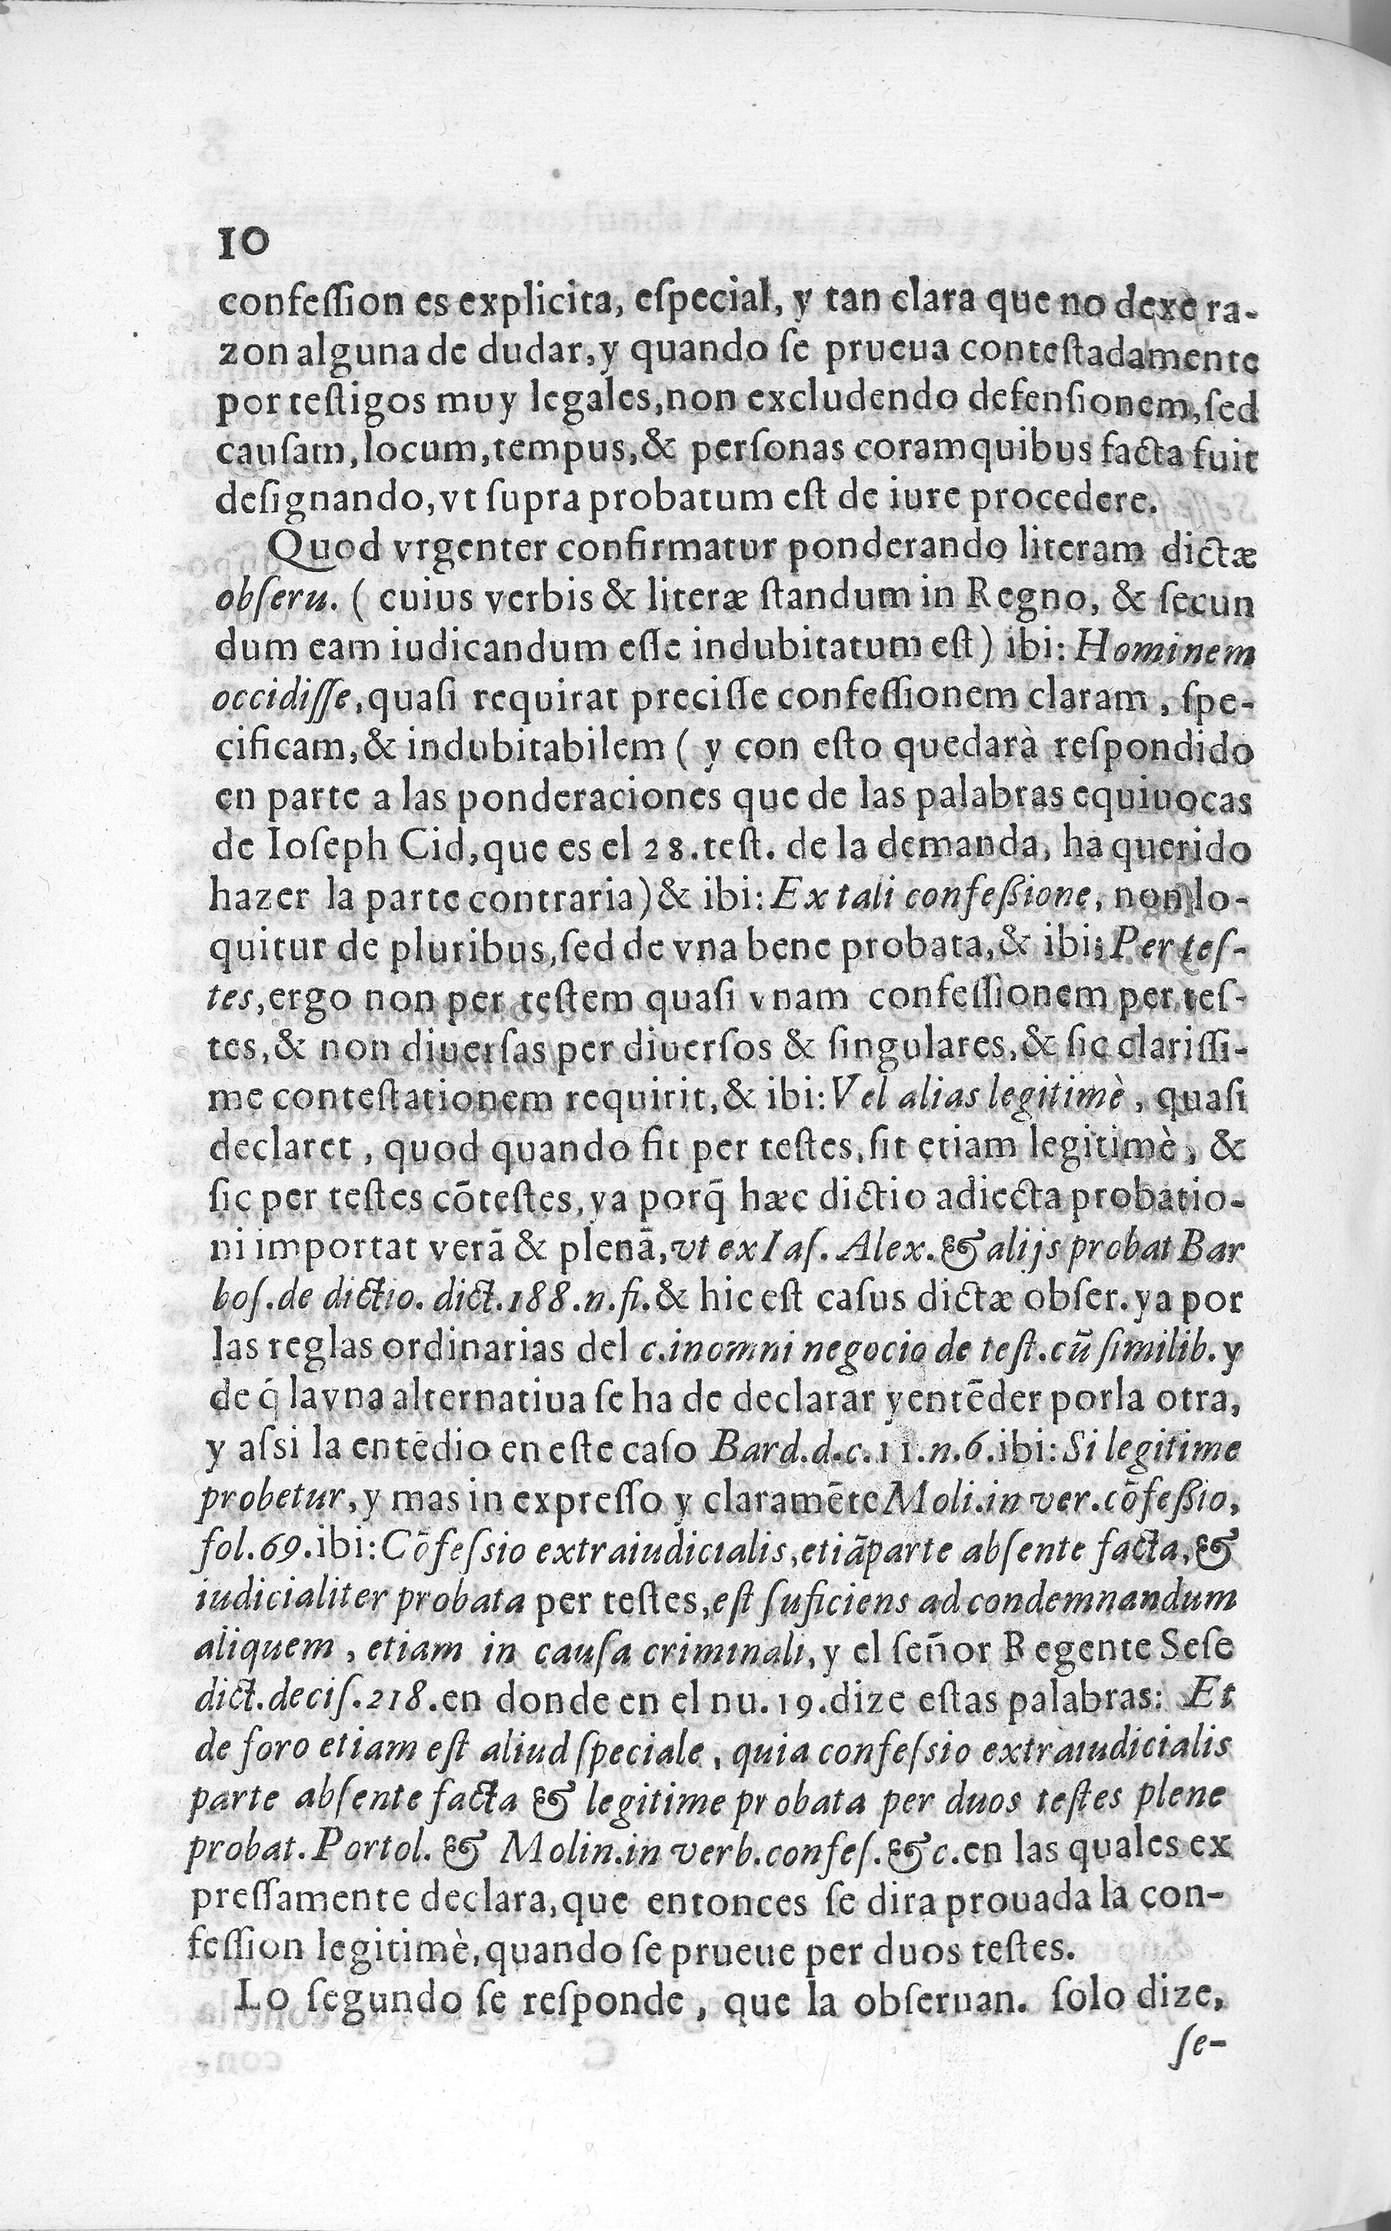 10
confeſſion es explicita, eſpecial, y tan clara que no dexe ra-
zon alguna de dudar, y quando ſe prueua conteſtadamente
por teſtigos muy legales, non excludendo defenſionem, ſed
cauſam, locum, tempus, & perſonas coram quibus facta fuit
deſignando, vt ſupra probatum eſt de iure procedere.
Quod vrgenter confirmatur ponderando literam dictæ
obſeru. ( cuius verbis & literæ ſtandum in Regno, & ſecun
dum eam iudicandum eſſe indubitatum eſt) ibi: Hominem
occidiſſe, quaſi requirat preciſſe confeſſionem claram, ſpe-
cificam, & indubitabilem ( y con eſto quedarà reſpondido
en parte a las ponderaciones que de las palabras equiuocas
de Ioſeph Cid, que es el 28. teſt. de la demanda, ha querido
hazer la parte contraria) & ibi: Ex tali confeßione, non lo-
quitur de pluribus, ſed de vna bene probata, & ibi: Per teſ-
tes, ergo non per teſtem quaſi vnam confeſſionem per teſ-
tes, & non diuerſas per diuerſos & ſingulares, & ſic clariſſi-
me conteſtationem requirit, & ibi: Vel alias legitimè, quaſi
declaret, quod quando fit per teſtes, ſit etiam legitimè, &
ſic per teſtes cōteſtes, ya porq̄ hæc dictio adiecta probatio-
ni importat verā & plenā, vt ex Iaſ. Alex. & alijs probat Bar
boſ. de dictio. dict. 188. n. fi. & hic eſt caſus dictæ obſer. ya por
las reglas ordinarias del c. in omni negocio de teſt. cū ſimilib. y
de q̄ la vna alternatiua ſe ha de declarar y entēder por la otra,
y aſsi la entēdio en eſte caſo Bard. d. c. 11. n. 6. ibi: Si legitime
probetur, y mas in expreſſo y claramēte Moli. in ver. cōfeßio,
fol. 69. ibi: Cōfeſsio extraiudicialis, etiā parte abſente facta, &
iudicialiter probata per teſtes, eſt ſuficiens ad condemnandum
aliquem, etiam in cauſa criminali, y el ſeñor Regente Seſe
dict. deciſ. 218. en donde en el nu. 19. dize eſtas palabras: Et
de foro etiam eſt aliud ſpeciale, quia confeſsio extraiudicialis
parte abſente facta & legitime probata per duos teſtes plene
probat. Portol. & Molin. in verb. confeſ. & c. en las quales ex
preſſamente declara, que entonces ſe dira prouada la con-
feſſion legitimè, quando ſe prueue per duos teſtes.
Lo ſegundo ſe reſponde, que la obſeruan. ſolo dize,
ſe-